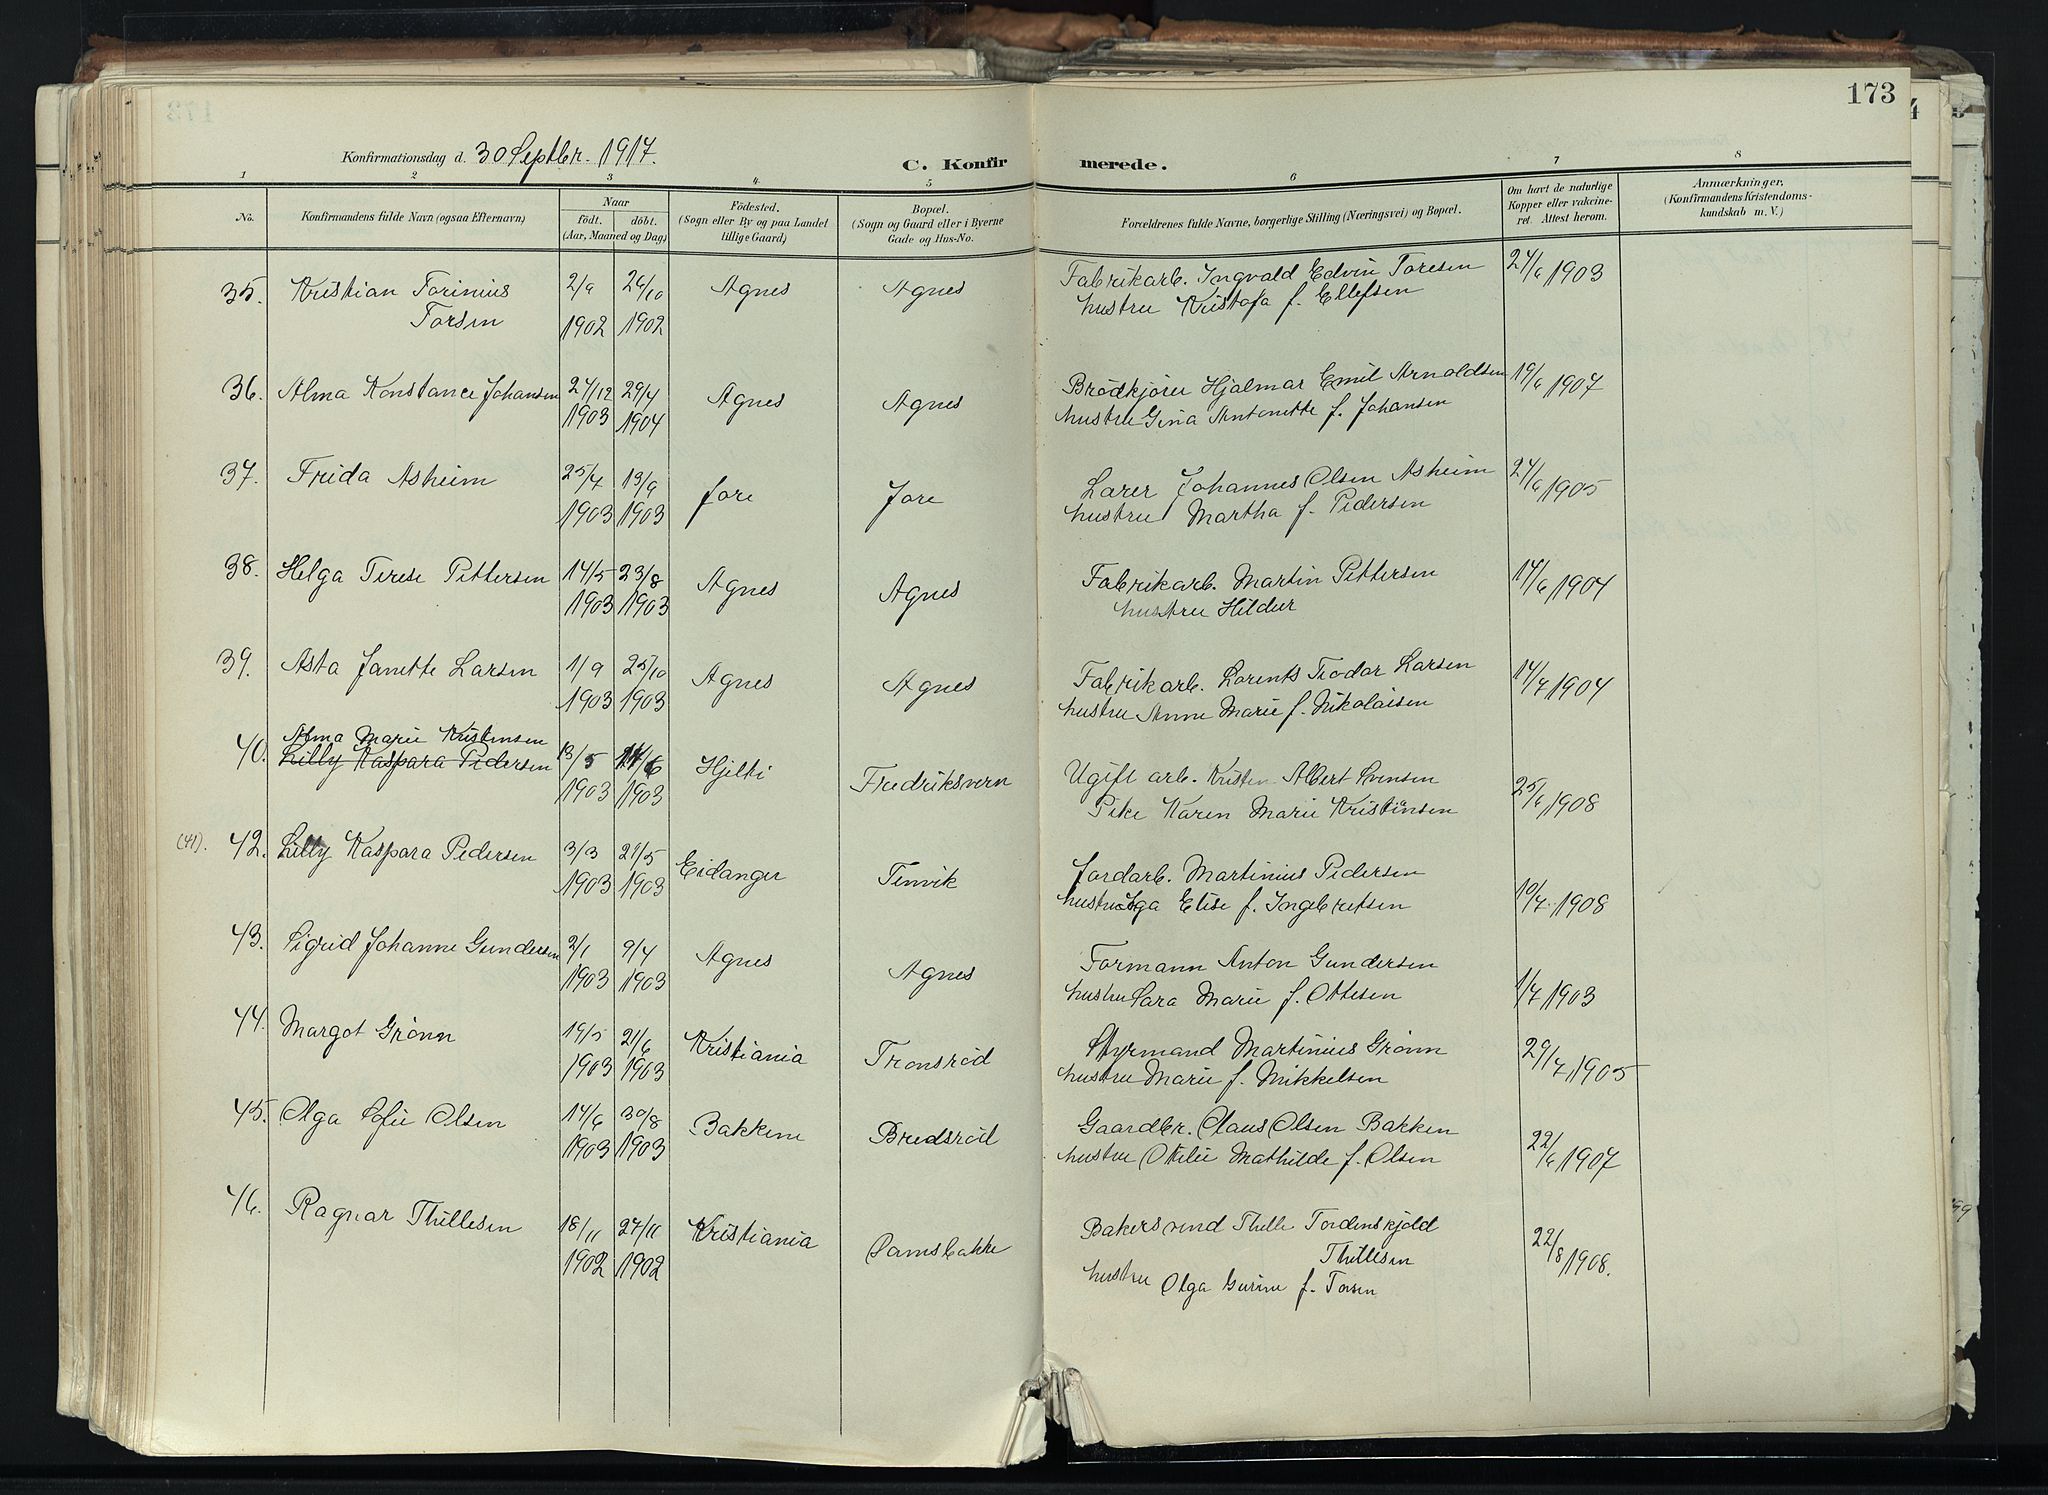 173
Konfirmationsdag d. 30 Septbr. 1917.
C. Konfirmerede.
1 2 3 4 5 6 7 8
No.
Konfirmandens fulde Navn (ogsaa Efternavn)
Naar
födt. döbt.
(Aar, Maaned og Dag)
Födested.
(Sogn eller By og paa Landet
tillige Gaard)
Bopæl.
(Sogn og Gaard eller i Byerne
Gade og Hus-No.
Forældrenes fulde Navne, borgerlige Stilling (Næringsvei) og Bopæl.
Om havt de naturlige
Kopper eller vakcine-
ret. Attest herom.
Anmærkninger,
(Konfirmandens Kristendoms-
kundskab m. V.)
35. Kristian Torinius 2/9 26/10 Agnes Agnes Fabrikarb. Ingvald Edvin Toresen 27/6 1903
Torsen 1902 1902 hustru Kristofa f. Ellefsen
36. Alma Konstance Johansen 27/12 29/4 Agnes Agnes Brödkjörer Hjalmar Emil Arnoldsen 19/6 1907
1903 1904 hustru Gina Antonette f. Johansen
37. Frida Asheim 25/7 13/9 Jore Jore Lærer Johannes Olsen Asheim 27/6 1905
1903 1903 hustru Martha f. Pedersen
38. Helga Terese Pettersen 14/5 23/8 Agnes Agnes Fabrikarb. Martin Pettersen 17/6 1904
1903 1903 hustru Hildur
39. Asta Janette Larsen 1/9 25/10 Agnes Agnes Fabrikarb. Lorents Teodor Larsen 14/7 1904
1903 1903 hustru Anne Marie f. Nikolaisen
Alma Marie Kristensen
40. Lilly Kaspara Pedersen 13/5 Hjelti Fredriksvern Ugift arb. Kristen Albert Svensen 25/6 1908
1903 1903 Pike Karen Marie Kristensen
(41). 42. Lilly Kaspara Pedersen 3/3 21/5 Eidanger Tenvik Jordarb. Martinius Pedersen 10/7 1908
1903 1903 hustru Inga Elise f. Ingebretsen
43. Sigrid Johanne Gundersen 2/1 9/4 Agnes Agnes Formann Anton Gundersen 1/7 1903
1903 1903 hustru Sara Marie f. Ottesen
44. Margot Grönn 19/5 21/6 Kristiania Tronsröd Styrmand Martinius Grönn 29/7 1905
1903 1903 hustru Marie f. Mikkelsen
45. Olga Sofie Olsen 14/6 30/8 Bakkene Bredsröd Gaardbr. Claus Olsen Bakken 22/6 1907
1903 1903 hustru Otilie Mathilde f. Olsen
46. Ragnar Thillesen 18/11 27/11 Kristiania Damsbakke Bakersvend Thille Tordenskjold 22/8 1908.
1902 1902 Thillesen
hustru Olga Gurine f. Torsen